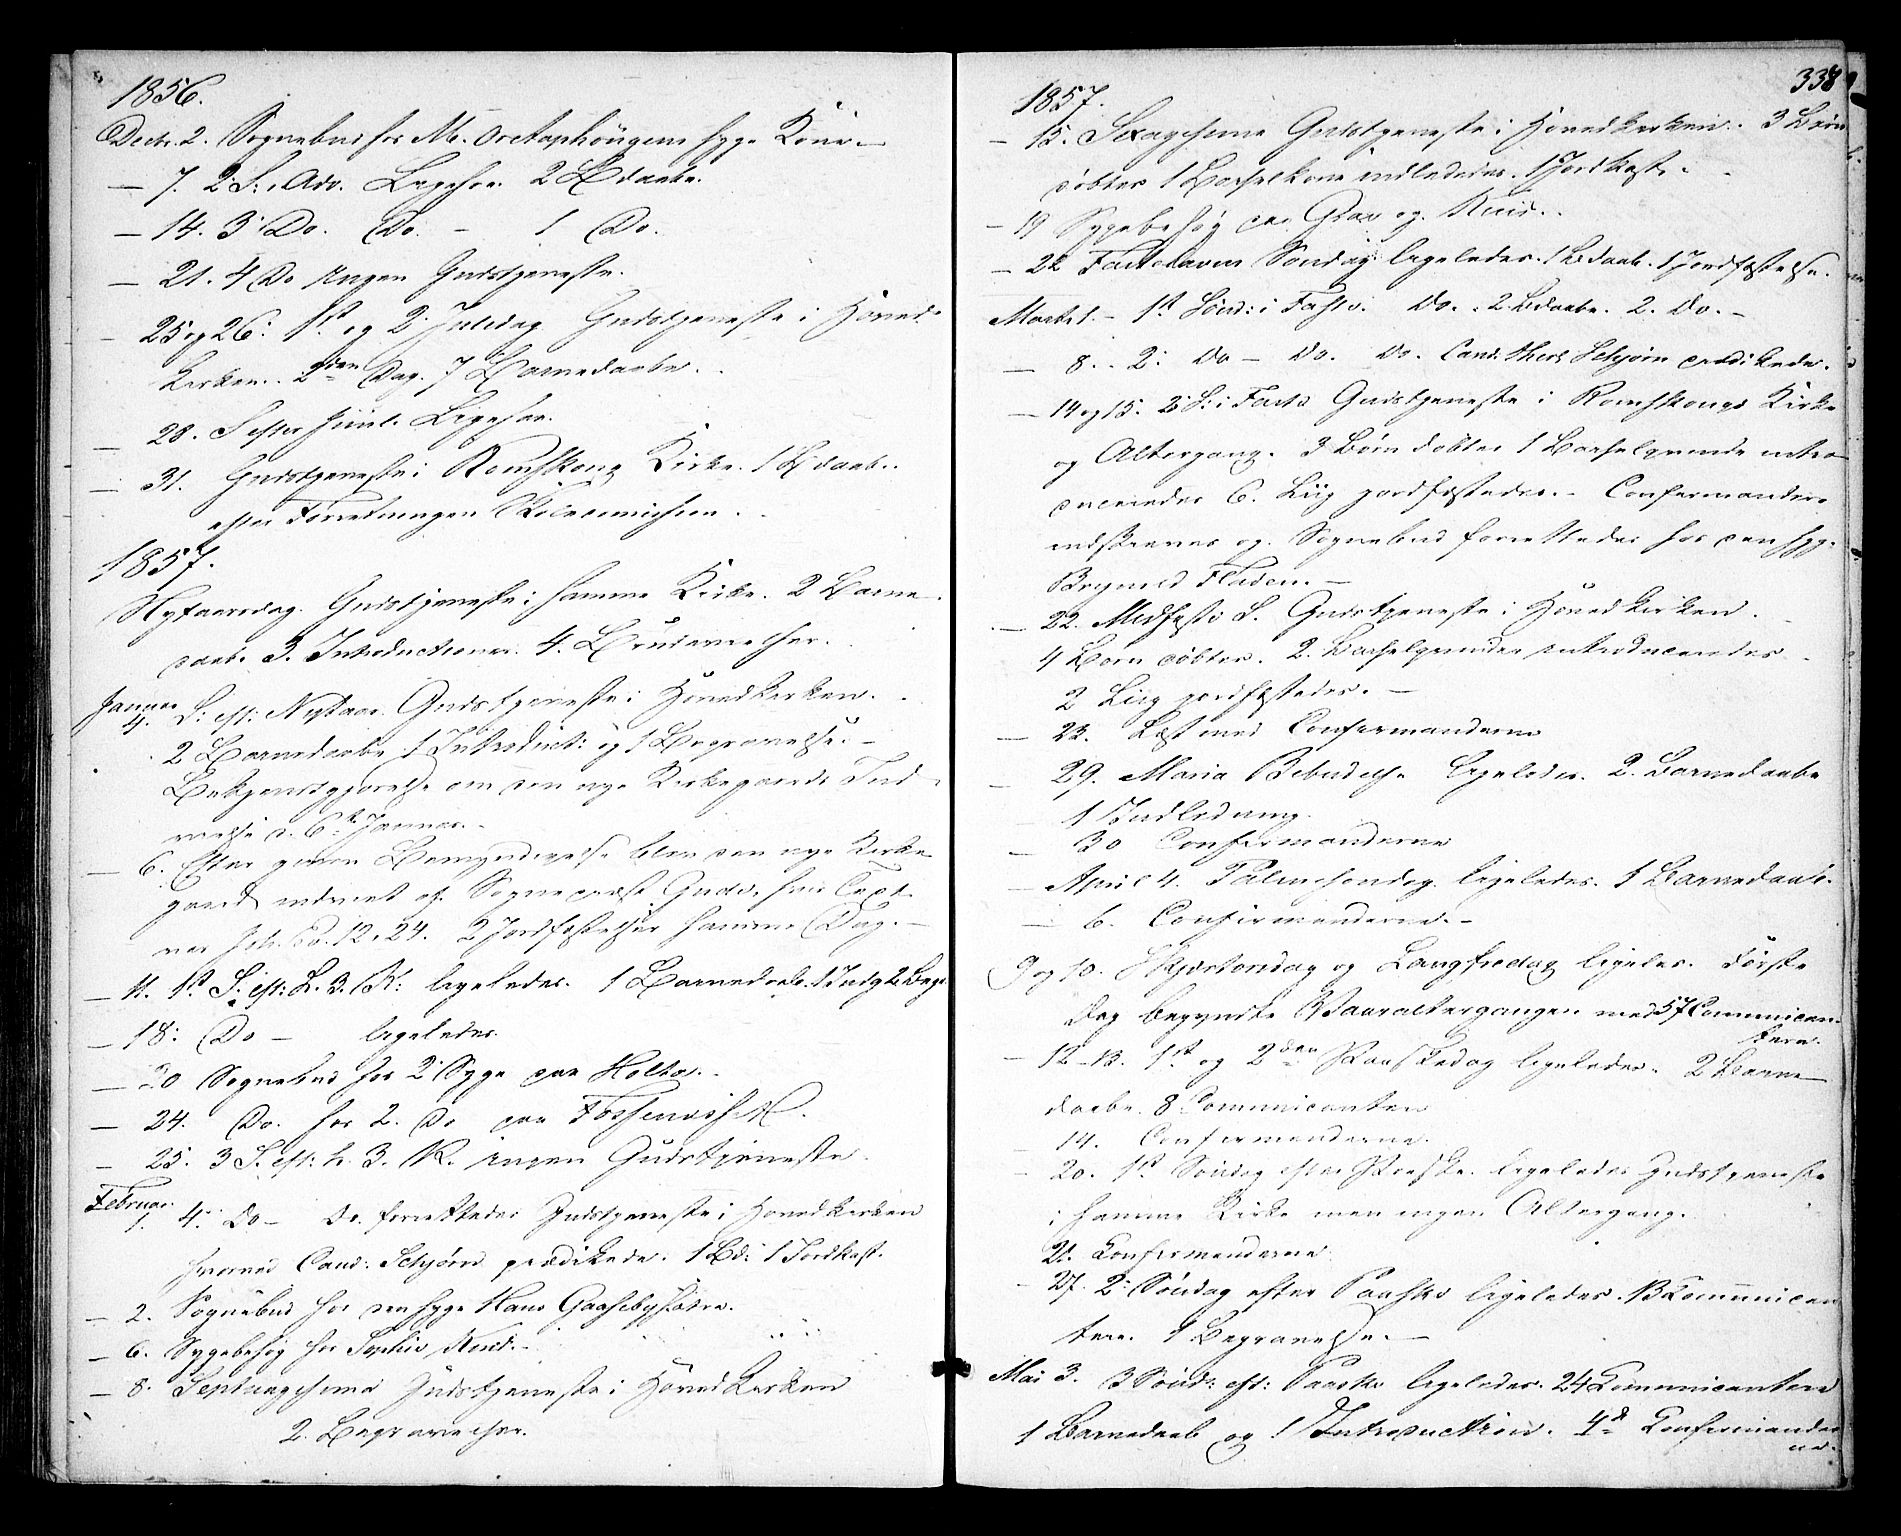 1856.
Decbr. 2. Sognebud hos M. syge Kone.
— 7. 2 S: i Adv. Ligesaa. 2 B daabe.
— 14. 3 Do. Do. - 1 Do.
— 21. 4 Do Ingen Gudstjeneste.
— 25 og 26: 1st og 2 Juledag Gudstjeneste i Hoved-
kirken. 2den Dag. 7 Barnedaabe.
— 28. S efter Juul. Ligesaa.
— 31. Gudstjeneste i Rømskoug Kirke. 1 B daab.
efter Forretningen
1857.
Nytaarsdag. Gudstjeneste i samme Kirke. 2 Barne
daabe 3. Introductioner. 4. Brudevielser.
Januar
4. S: eft: Nytaar. Gudstjeneste i Hovedkirken.
2 Barnedaabe 1 Introduct: og 1 Begravelse. -
Bekjendtgjørelse om den nye Kirkegaards Ind-
vielse d. 6te Januar. -
— 6. Efter given Bemyndigelse blev den nye Kirke
gaard indviet af Sognepræst hvis Text
var Joh. Ev. 12, 24. 2 Jordfæstelser samme Dag. —
— 11. 1st S. eft: H. 3. K: ligeledes. 1 Barnedaab. 1 Intr. 2 Begr
— 18: Do — ligeledes.
— 20 Sognebud hos 2 Syge paa
— 24. Do. hos 2. Do paa
— 25. 3 S. eft: h. 3. K. ingen Gudstjeneste.
Februar
1. 4: Do — Do. forrettedes Gudstjeneste i Hovedkirken
hvorved Cand: Schjørn prædikede. 1 Bd: 1 Jordkast.
— 2. Sognebud hos den syge Hans
— 6. Sygebesøg hos Sophie
— 8. Septuagesima Gudstjeneste i Hovedkirken
2. Begravelser.
338
1857.
— 15. Sexagesima Gudstjeneste i Hovedkirken. 3 Børn
døbtes 1 Barselkone indlededes. 1 Jordkast. -
— 19 Sygebesøg paa og
— 22 Fastelavns Søndag ligeledes. 1 B daab. 1 Jordfæstelse.
Marts 1. - 1st Sønd: i Faste. Do. 2. B daabe. 2. Do. -
— 8. 2: Do — Do. Do. Cand. theol Schjørn prædikede.
— 14 og 15. 2 S: i Faste Gudstjeneste i Romskougs Kirke
og Altergang. 3 Børn døbtes 1 Barselqvinde intro-
duceredes 6. Liig jordfæstedes. - Confirmanderne
indskreves og Sognebud forrettedes hos den syge
Brynild —
— 22. Midfaste S. Gudstjeneste i Hovedkirken.
4 Børn døbtes. 2. Barselqvinder introduceredes
2 Liig jordfæstedes. —
— 23. Læst med Confirmanderne
— 29. Maria Bebudelse ligeledes. 2. Barnedaabe
1 Indledning.
— 30 Confirmanderne
— April 4. Palmesøndag ligeledes. 1 Barnedaab.
— 6. Confirmanderne. -
9 og 10. Skjærtorsdag og Langfredag ligeledes. Første
Dag begyndte Vaaraltergangen med 57 Communican-
tere.
— 12-13. 1st og 2den Paaskedag ligeledes. 2 Barne
daabe. 8 Communicanter
14. Confirmanderne.
— 20. 1st Søndag efter Paaske. ligeledes Gudstjeneste
i samme Kirke men ingen Altergang.
21. Confirmanderne
— 27. 2: Søndag efter Paaske ligeledes. 13 Communican
tere. 1 Begravelse. —
Mai 3. 3 Sønd: eft: Paaske ligeledes. 24 Communicantere
1 Barnedaab og 1 Introduction. 4d Confirmander
ne.